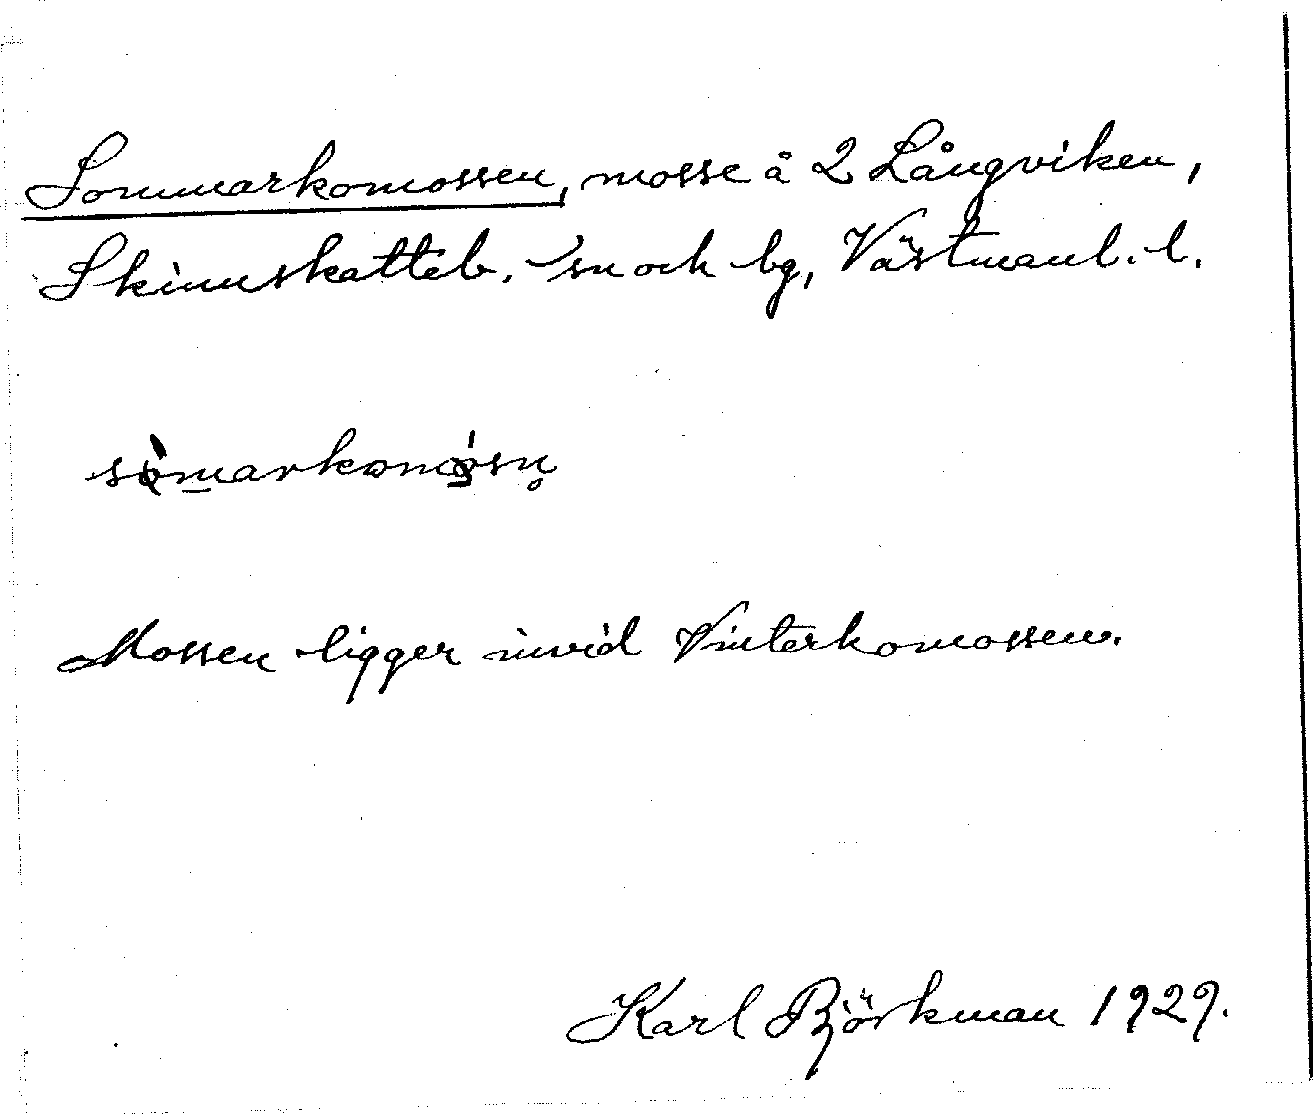 Sommarkomossen, mosse å 2 Långviken,
Skinnskatteb. sn och bg, Västmanl. l.
sòmarkomósn̥
Mossen ligger invid Vinterkomossen.
Karl Björkman 1929.